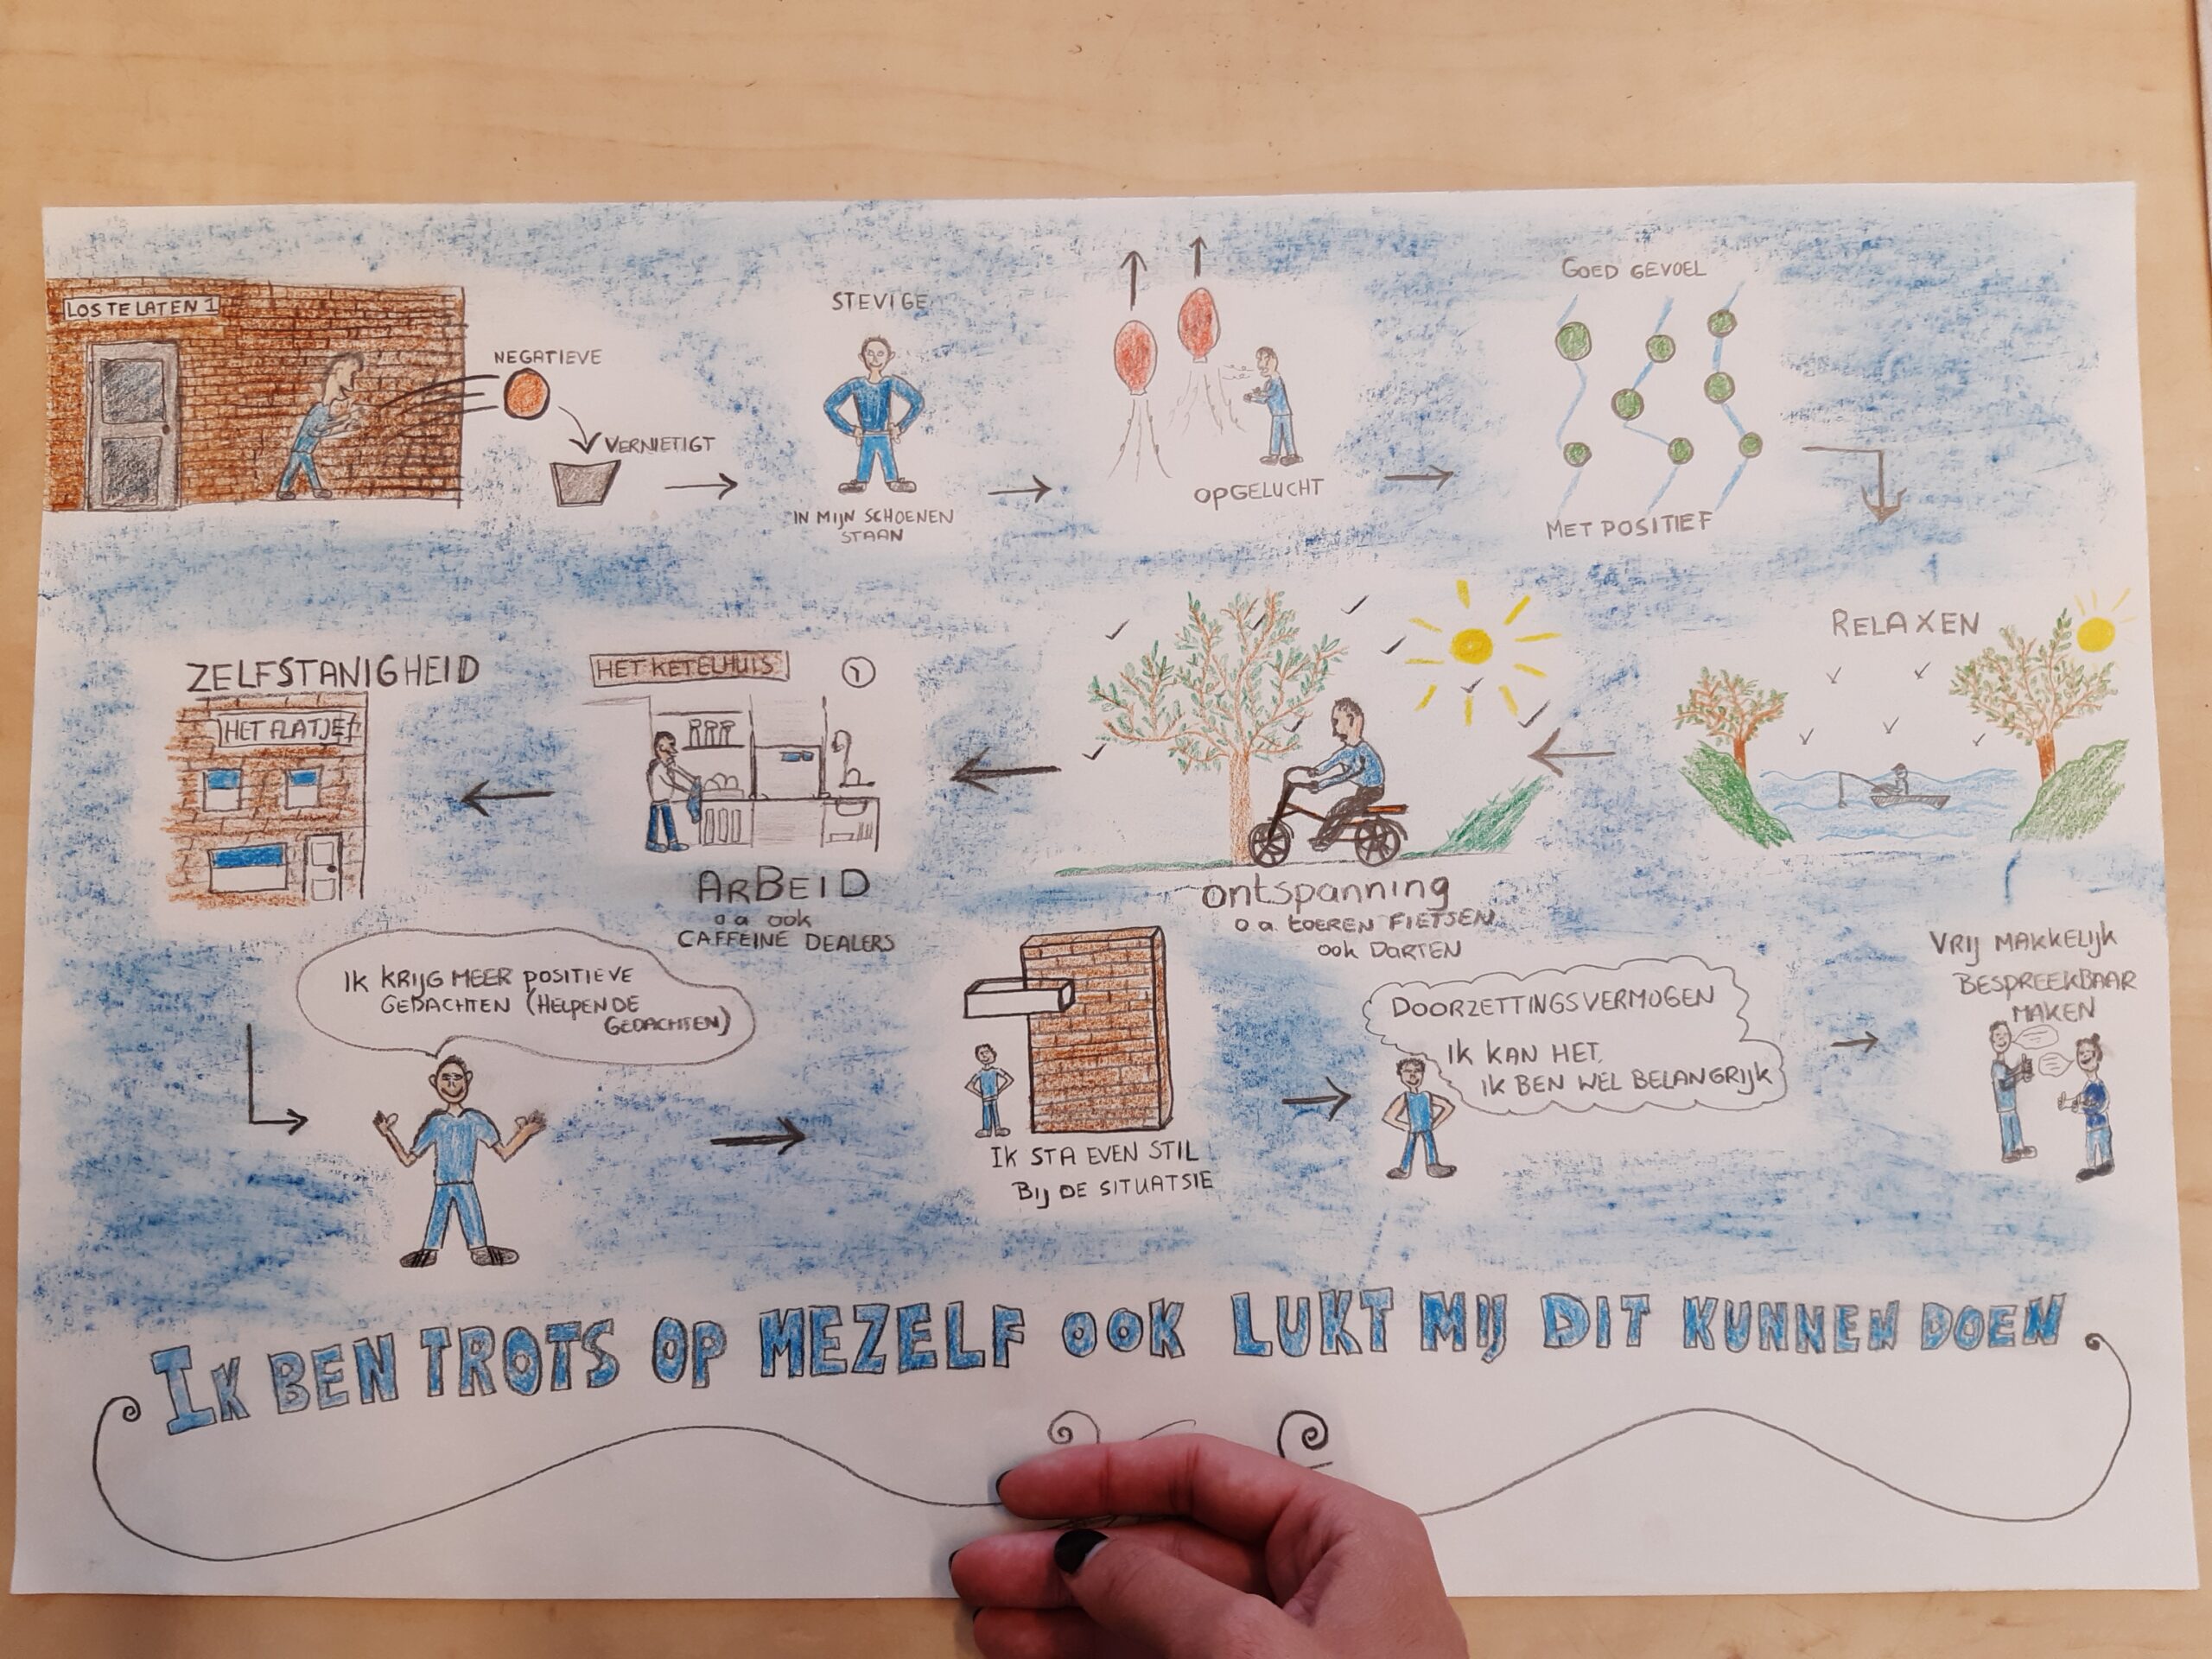 LOS TE LATEN 1
NEGATIEVE
VERNIETIGT
STEVIGE
IN MIJN SCHOENEN
STAAN
OPGELUCHT
GOED GEVOEL
MET POSITIEF
RELAXEN
ontspanning
o a toeren FIETSEN
ook DARTEN
HET KETELHUIS
1
ARBEID
o a ook
CAFFEINE DEALERS
ZELFSTANIGHEID
HET FLATJE
IK KRIJG MEER POSITIEVE
GEDACHTEN (HELPENDE
GEDACHTEN)
IK STA EVEN STIL
BIJ DE SITUATSIE
DOORZETTINGSVERMOGEN
IK KAN HET.
IK BEN WEL BELANGRIJK
VRIJ MAKKELIJK
BESPREEKBAAR
MAKEN
IK BEN TROTS OP MEZELF OOK LUKT MIJ DIT KUNNEN DOEN